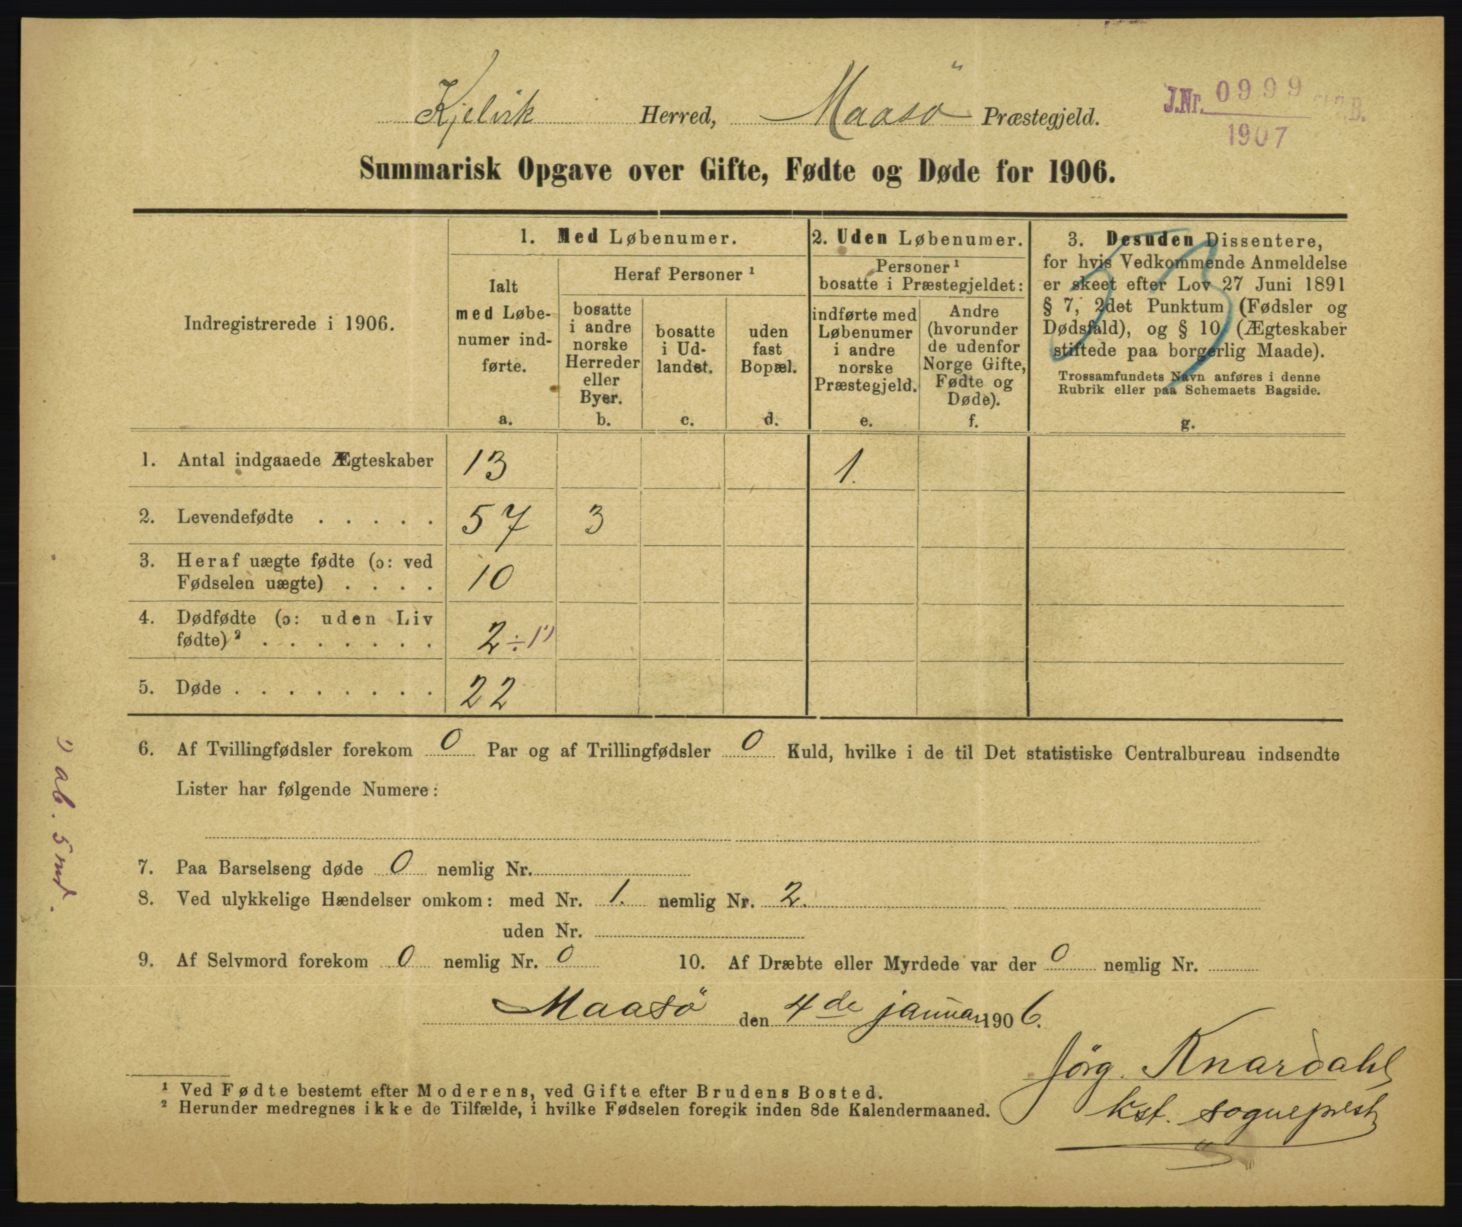 Kjelvik Herred, Maasö Præstegjeld.
J.Nr. 0999
1907
Summarisk Opgave over Gifte, Fødte og Døde for 1906.
Indregistrerede i 1906.
1. Med Løbenumer.
Ialt
med Løbe-
numer ind-
førte.
a.
Heraf Personer ¹
bosatte
i andre
norske
Herreder
eller
Byer.
b.
bosatte
i Ud-
landet.
c.
uden
fast
Bopæl.
d.
2. Uden Løbenumer.
Personer ¹
bosatte i Præstegjeldet:
indførte med
Løbenumer
i andre
norske
Præstegjeld.
e.
Andre
(hvorunder
de udenfor
Norge Gifte,
Fødte og
Døde).
f.
3. Desuden Dissentere,
for hvis Vedkommende Anmeldelse
er skeet efter Lov 27 Juni 1891
§ 7, 2det Punktum (Fødsler og
Dødsfald), og § 10 (Ægteskaber
stiftede paa borgerlig Maade).
Trossamfundets Navn anføres i denne
Rubrik eller paa Schemaets Bagside.
g.
1. Antal indgaaede Ægteskaber 13 1.
2. Levendefødte . . . . . 57 3
3. Heraf uægte fødte (ɔ: ved
Fødselen uægte) . . . . 10
4. Dødfødte (ɔ: uden Liv
fødte) ² . . . . . . . 2 ÷ 1¹)
5. Døde . . . . . . . . . 22
6. Af Tvillingfødsler forekom 0 Par og af Trillingfødsler 0 Kuld, hvilke i de til Det statistiske Centralbureau indsendte
Lister har følgende Numere:
7. Paa Barselseng døde 0 nemlig Nr.
8. Ved ulykkelige Hændelser omkom: med Nr. 1. nemlig Nr. 2.
uden Nr.
9. Af Selvmord forekom 0 nemlig Nr. 0 10. Af Dræbte eller Myrdede var der 0 nemlig Nr.
Maasö den 4de januar 1906.
Jörg. Knardahl
kst. sogneprest
¹ Ved Fødte bestemt efter Moderens, ved Gifte efter Brudens Bosted.
² Herunder medregnes ikke de Tilfælde, i hvilke Fødselen foregik inden 8de Kalendermaaned.
¹) ab. 5 md.